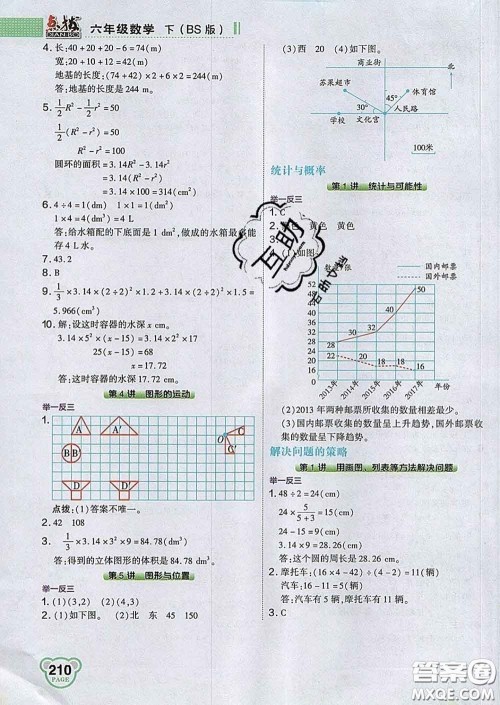 点拨
DIAN BO
六年级数学 下(BS版)
4.长:40+20+20-6=74(m)
宽:10+20+12=42(m)
地基的长度:(74+42)×2+6×2=244(m)
答:地基的长度是244 m。
5.1/2R²-1/2r²=50
1/2(R²-r²)=50
R²-r²=100
圆环的面积=3.14R²-3.14r²
=3.14(R²-r²)
=314
6.4÷4=1(dm) 1×1=1(dm²)
1×4=4(dm³)=4 L
答:给水箱配的下底面是1 dm²,做成的水箱最多能
存4 L水。
7.43.2
8.B
9.1/3×3.14×(2÷2)²×1.2+3.14×(2÷2)²×1.5=
5.966(m³)
10.解:设这时容器的水深x cm。
3.14×5²×(x-15)=3.14×2²×x
25(x-15)=4x
x≈17.72
答:这时容器的水深17.72 cm。
第4讲 图形的运动
举一反三
1.
A A′ O C
B B
D D′
点拨:(1)答案不唯一。
2.42 108
3.1/3×3.14×3²×9=84.78(dm³)
答:得到的立体图形的体积是84.78 dm³。
第5讲 图形与位置
举一反三
1.(1)(3,2) (2)(4,3)
2.(1)(2,4) (2)北 东 45 150
210
PAGE
(3)西 20 (4)如下图。
商业街 北
苏果超市 体育馆
45°
30° 人民路
学校 文化宫
100米
统计与概率
第1讲 统计与可能性
举一反三
1.C
黄色 黄色
3.
(1)如图
国内邮票
国外邮票
52
48
44
40
36
32
28
24
20
16
12
8
4
0
28
34
38
50
20
18
18
16
2013年 2014年 2015年 2016年 2017年 年份
(2)2013年两种邮票所收集的数量相差最少。
(3)国内邮票收集的数量呈上升趋势,国外邮票收
集的数量呈下降趋势。
解决问题的策略
第1讲 用画图、列表等方法解决问题
举一反三
1.48÷2=24(cm)
24×5/(5+3)=15(cm)
24-15=9(cm)
3.14×9=28.26(cm)
答:这个圆的周长是28.26 cm。
2.摩托车:(16×4-42)÷(4-2)=11(辆)
汽车:16-11=5(辆)
答:汽车有5辆,摩托车有11辆。
3.C
互助
答案圈
MXQE.COM